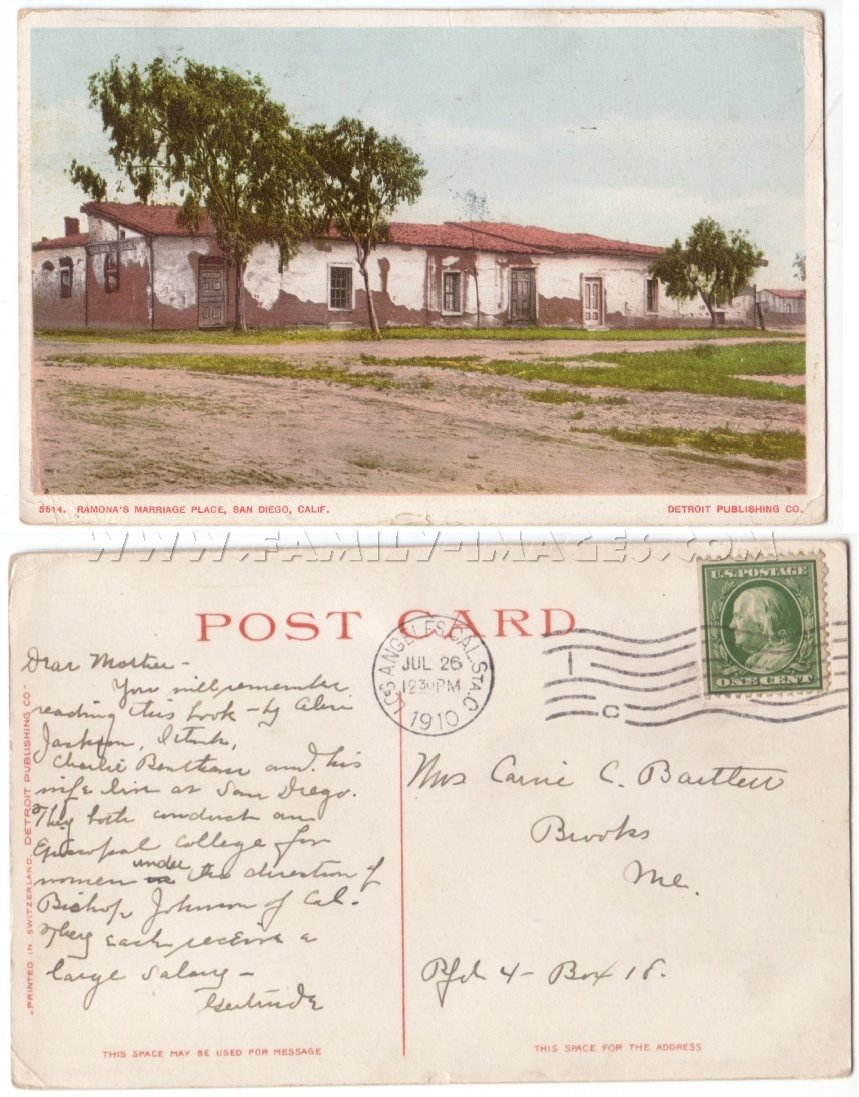 5514. RAMONA'S MARRIAGE PLACE, SAN DIEGO, CALIF.
DETROIT PUBLISHING CO.
WWW.FAMILY-IMAGES.COM
POST CARD
LOS ANGELES, CAL. STA. C
JUL 26
12 30 PM
1910
U.S. POSTAGE
ONE CENT
C
„PRINTED IN SWITZERLAND. DETROIT PUBLISHING CO."
Dear Mother-
You will remember
reading this book - by
Jackson, I think,
Charlie and his
wife live at San Diego.
They both conduct an
Episcopal College for
women under the direction of
Bishop Johnson of Cal.
They each receive a
large salary-
Gertrude
THIS SPACE MAY BE USED FOR MESSAGE
Mrs Carrie C. Bartlett
Brooks
Me.
Rfd 4 - Box 18.
THIS SPACE FOR THE ADDRESS